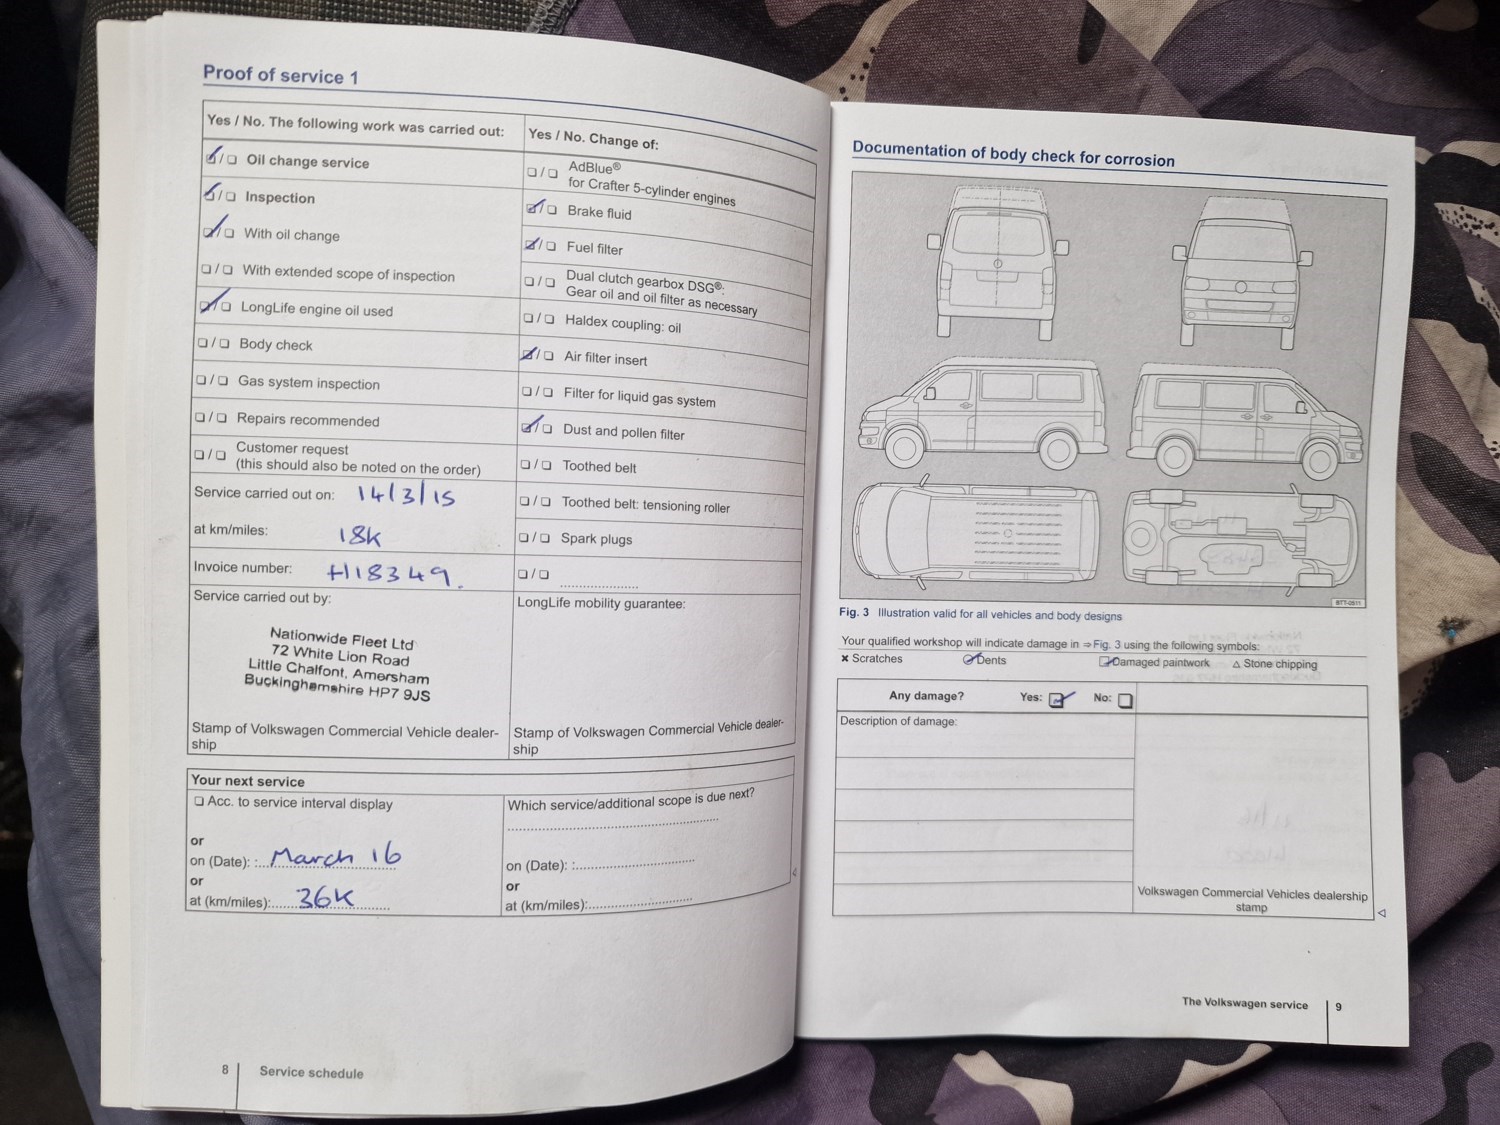 Proof of service 1
Yes / No. The following work was carried out:
☑/☐ Oil change service
☑/☐ Inspection
☑/☐ With oil change
☐/☐ With extended scope of inspection
☑/☐ LongLife engine oil used
☐/☐ Body check
☐/☐ Gas system inspection
☐/☐ Repairs recommended
☐/☐ Customer request
(this should also be noted on the order)
Service carried out on: 14/3/15
at km/miles: 18K
Invoice number: H18349.
Service carried out by:
Nationwide Fleet Ltd
72 White Lion Road
Little Chalfont, Amersham
Buckinghamshire HP7 9JS
Stamp of Volkswagen Commercial Vehicle dealer-
ship
Yes / No. Change of:
☐/☐ AdBlue®
for Crafter 5-cylinder engines
☑/☐ Brake fluid
☑/☐ Fuel filter
☐/☐ Dual clutch gearbox DSG®:
Gear oil and oil filter as necessary
☐/☐ Haldex coupling: oil
☑/☐ Air filter insert
☐/☐ Filter for liquid gas system
☑/☐ Dust and pollen filter
☐/☐ Toothed belt
☐/☐ Toothed belt: tensioning roller
☐/☐ Spark plugs
☐/☐ ....................
LongLife mobility guarantee:
Stamp of Volkswagen Commercial Vehicle dealer-
ship
Your next service
☐ Acc. to service interval display
or
on (Date): :...March 16
or
at (km/miles):......36K
Which service/additional scope is due next?
on (Date): :..............................
or
at (km/miles):..........................
8 Service schedule
Documentation of body check for corrosion
BTT-0511
Fig. 3 Illustration valid for all vehicles and body designs
Your qualified workshop will indicate damage in ⇒Fig. 3 using the following symbols:
✖ Scratches ○ Dents ☐ Damaged paintwork △ Stone chipping
Any damage? Yes: ☑ No: ☐
Description of damage:
Volkswagen Commercial Vehicles dealership
stamp
The Volkswagen service 9